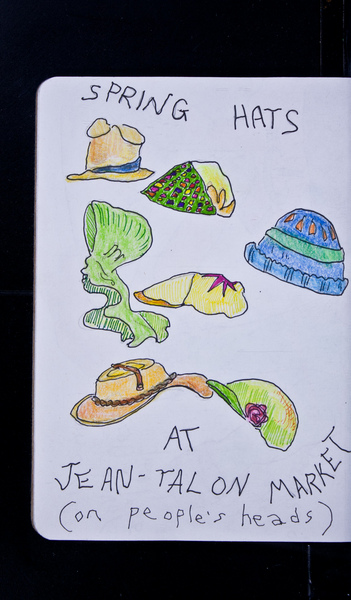 SPRING HATS
AT
JEAN-TALON MARKET
(on people's heads)